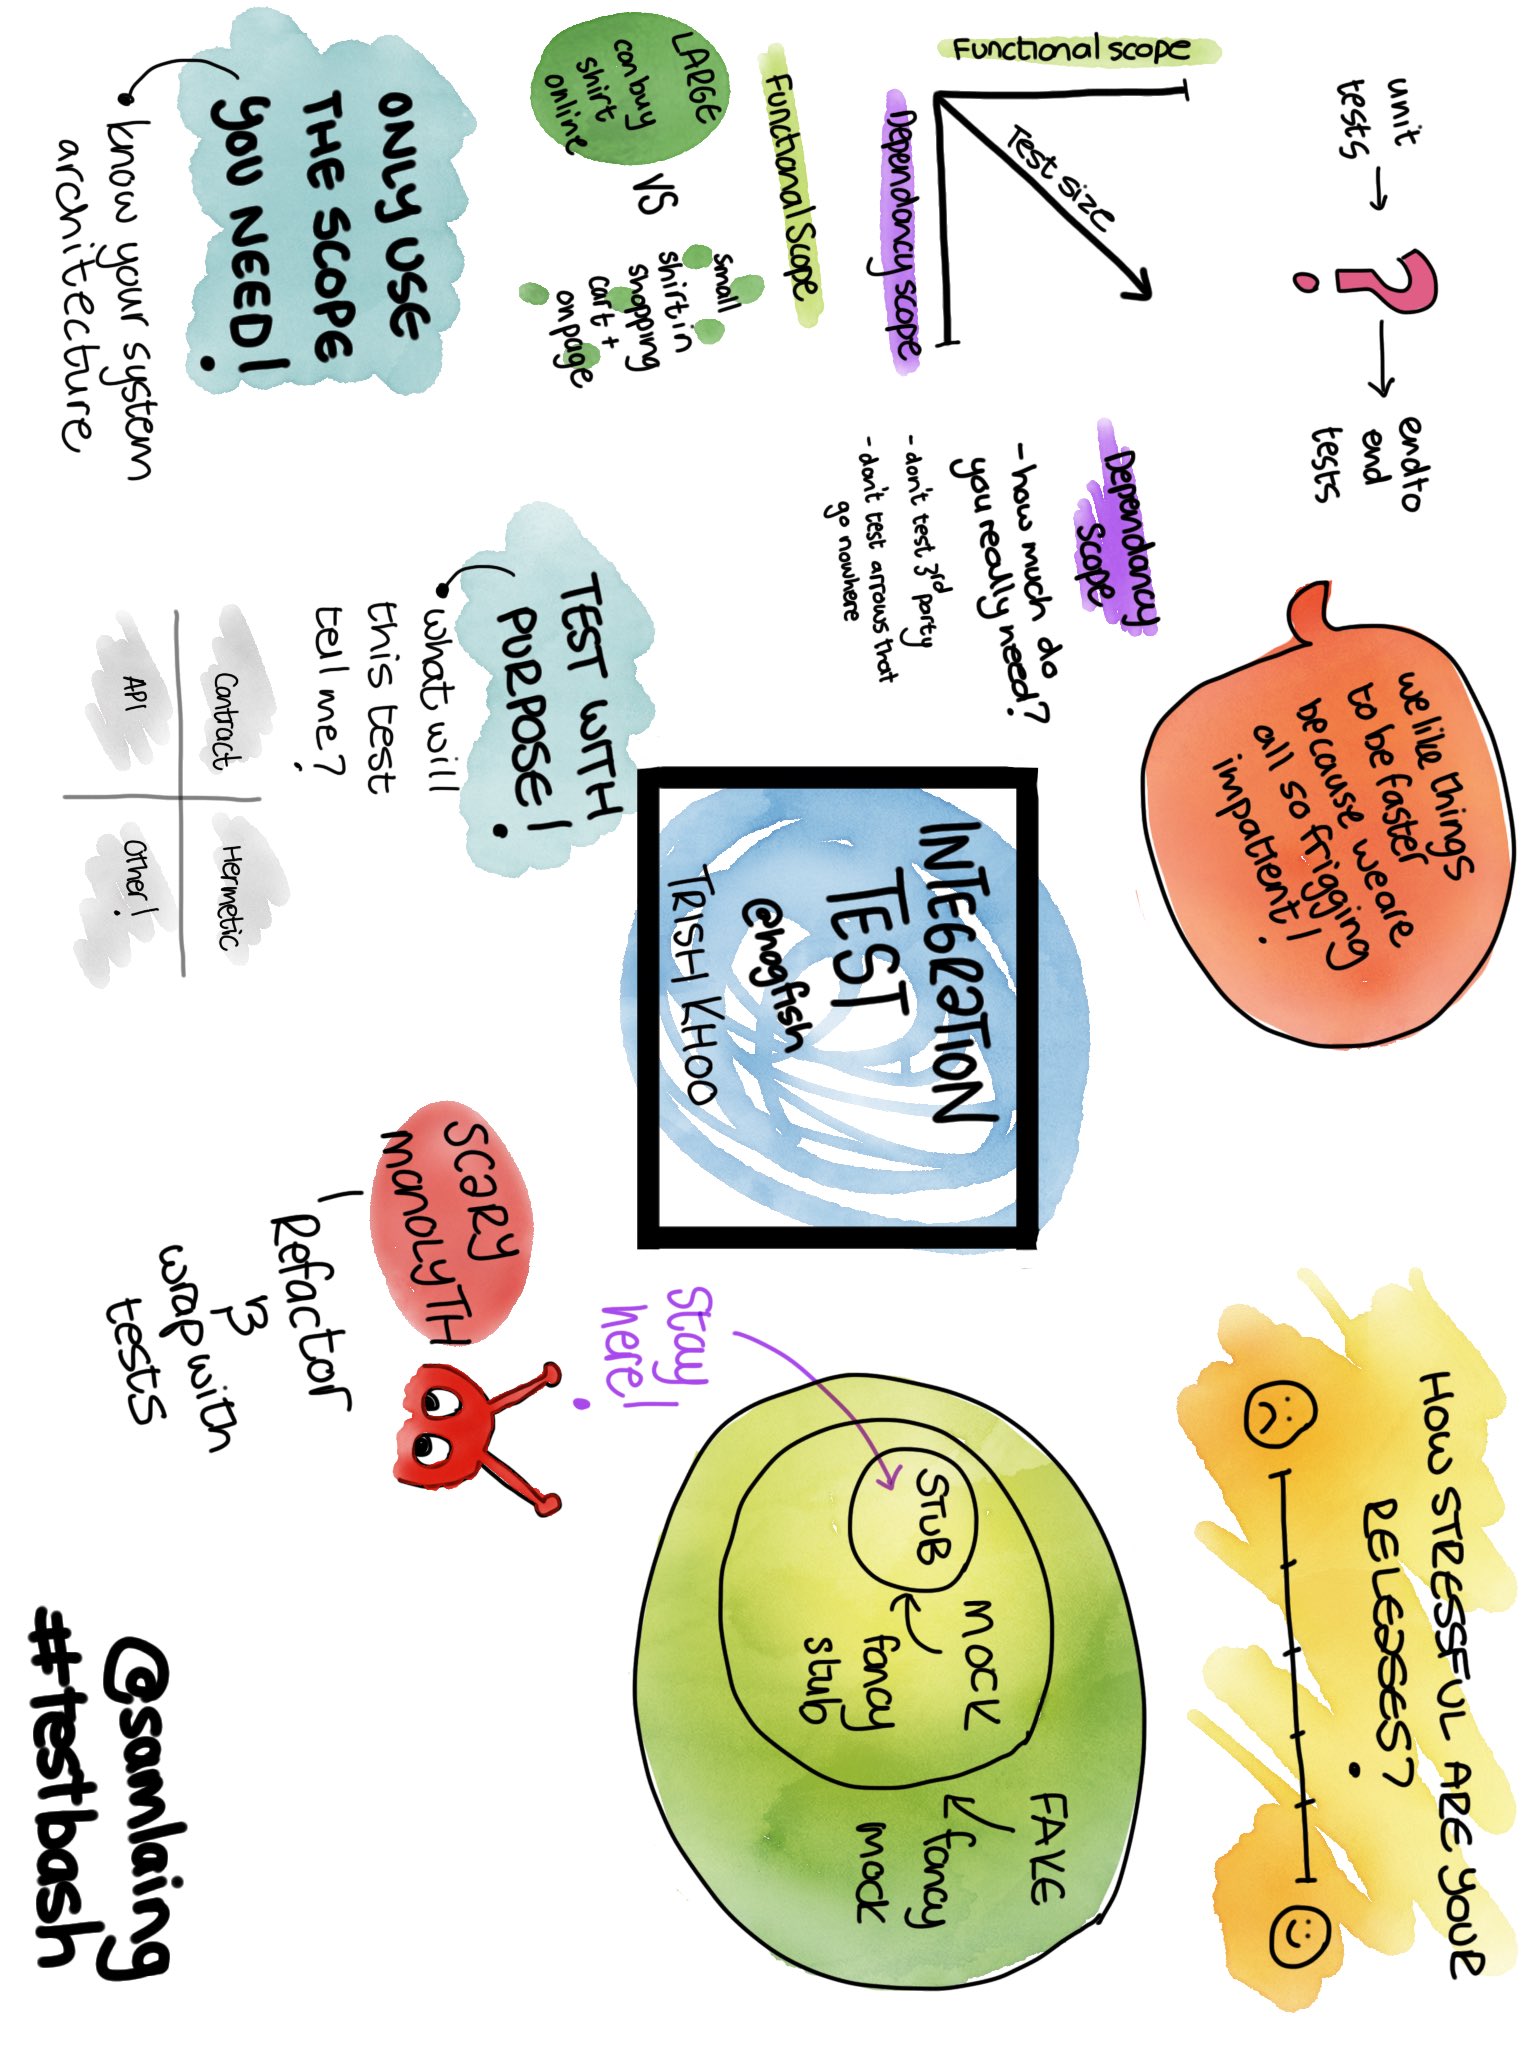 unit
tests
?
end to
end
tests
we like things
to be faster
because we are
all so frigging
impatient!
HOW STRESSFUL ARE YOUR
RELEASES?
Functional scope
Test size
Dependancy scope
Dependancy
Scope
- how much do
you really need?
- don't test 3rd party
- don't test arrows that
go nowhere
Functional Scope
LARGE
can buy
shirt
online
VS
small
shirt in
shopping
cart +
on page
INTEGRATION
TEST
@hogfish
TRISH KHOO
STUB
MOCK
fancy
stub
FAKE
fancy
mock
Stay
here!
ONLY USE
THE SCOPE
YOU NEED!
know your system
architecture
TEST WITH
PURPOSE!
what will
this test
tell me?
Contract
Hermetic
API
Other!
SCARY
MANOLYTH
Refactor
&
wrap with
tests
@samlaing
#testbash